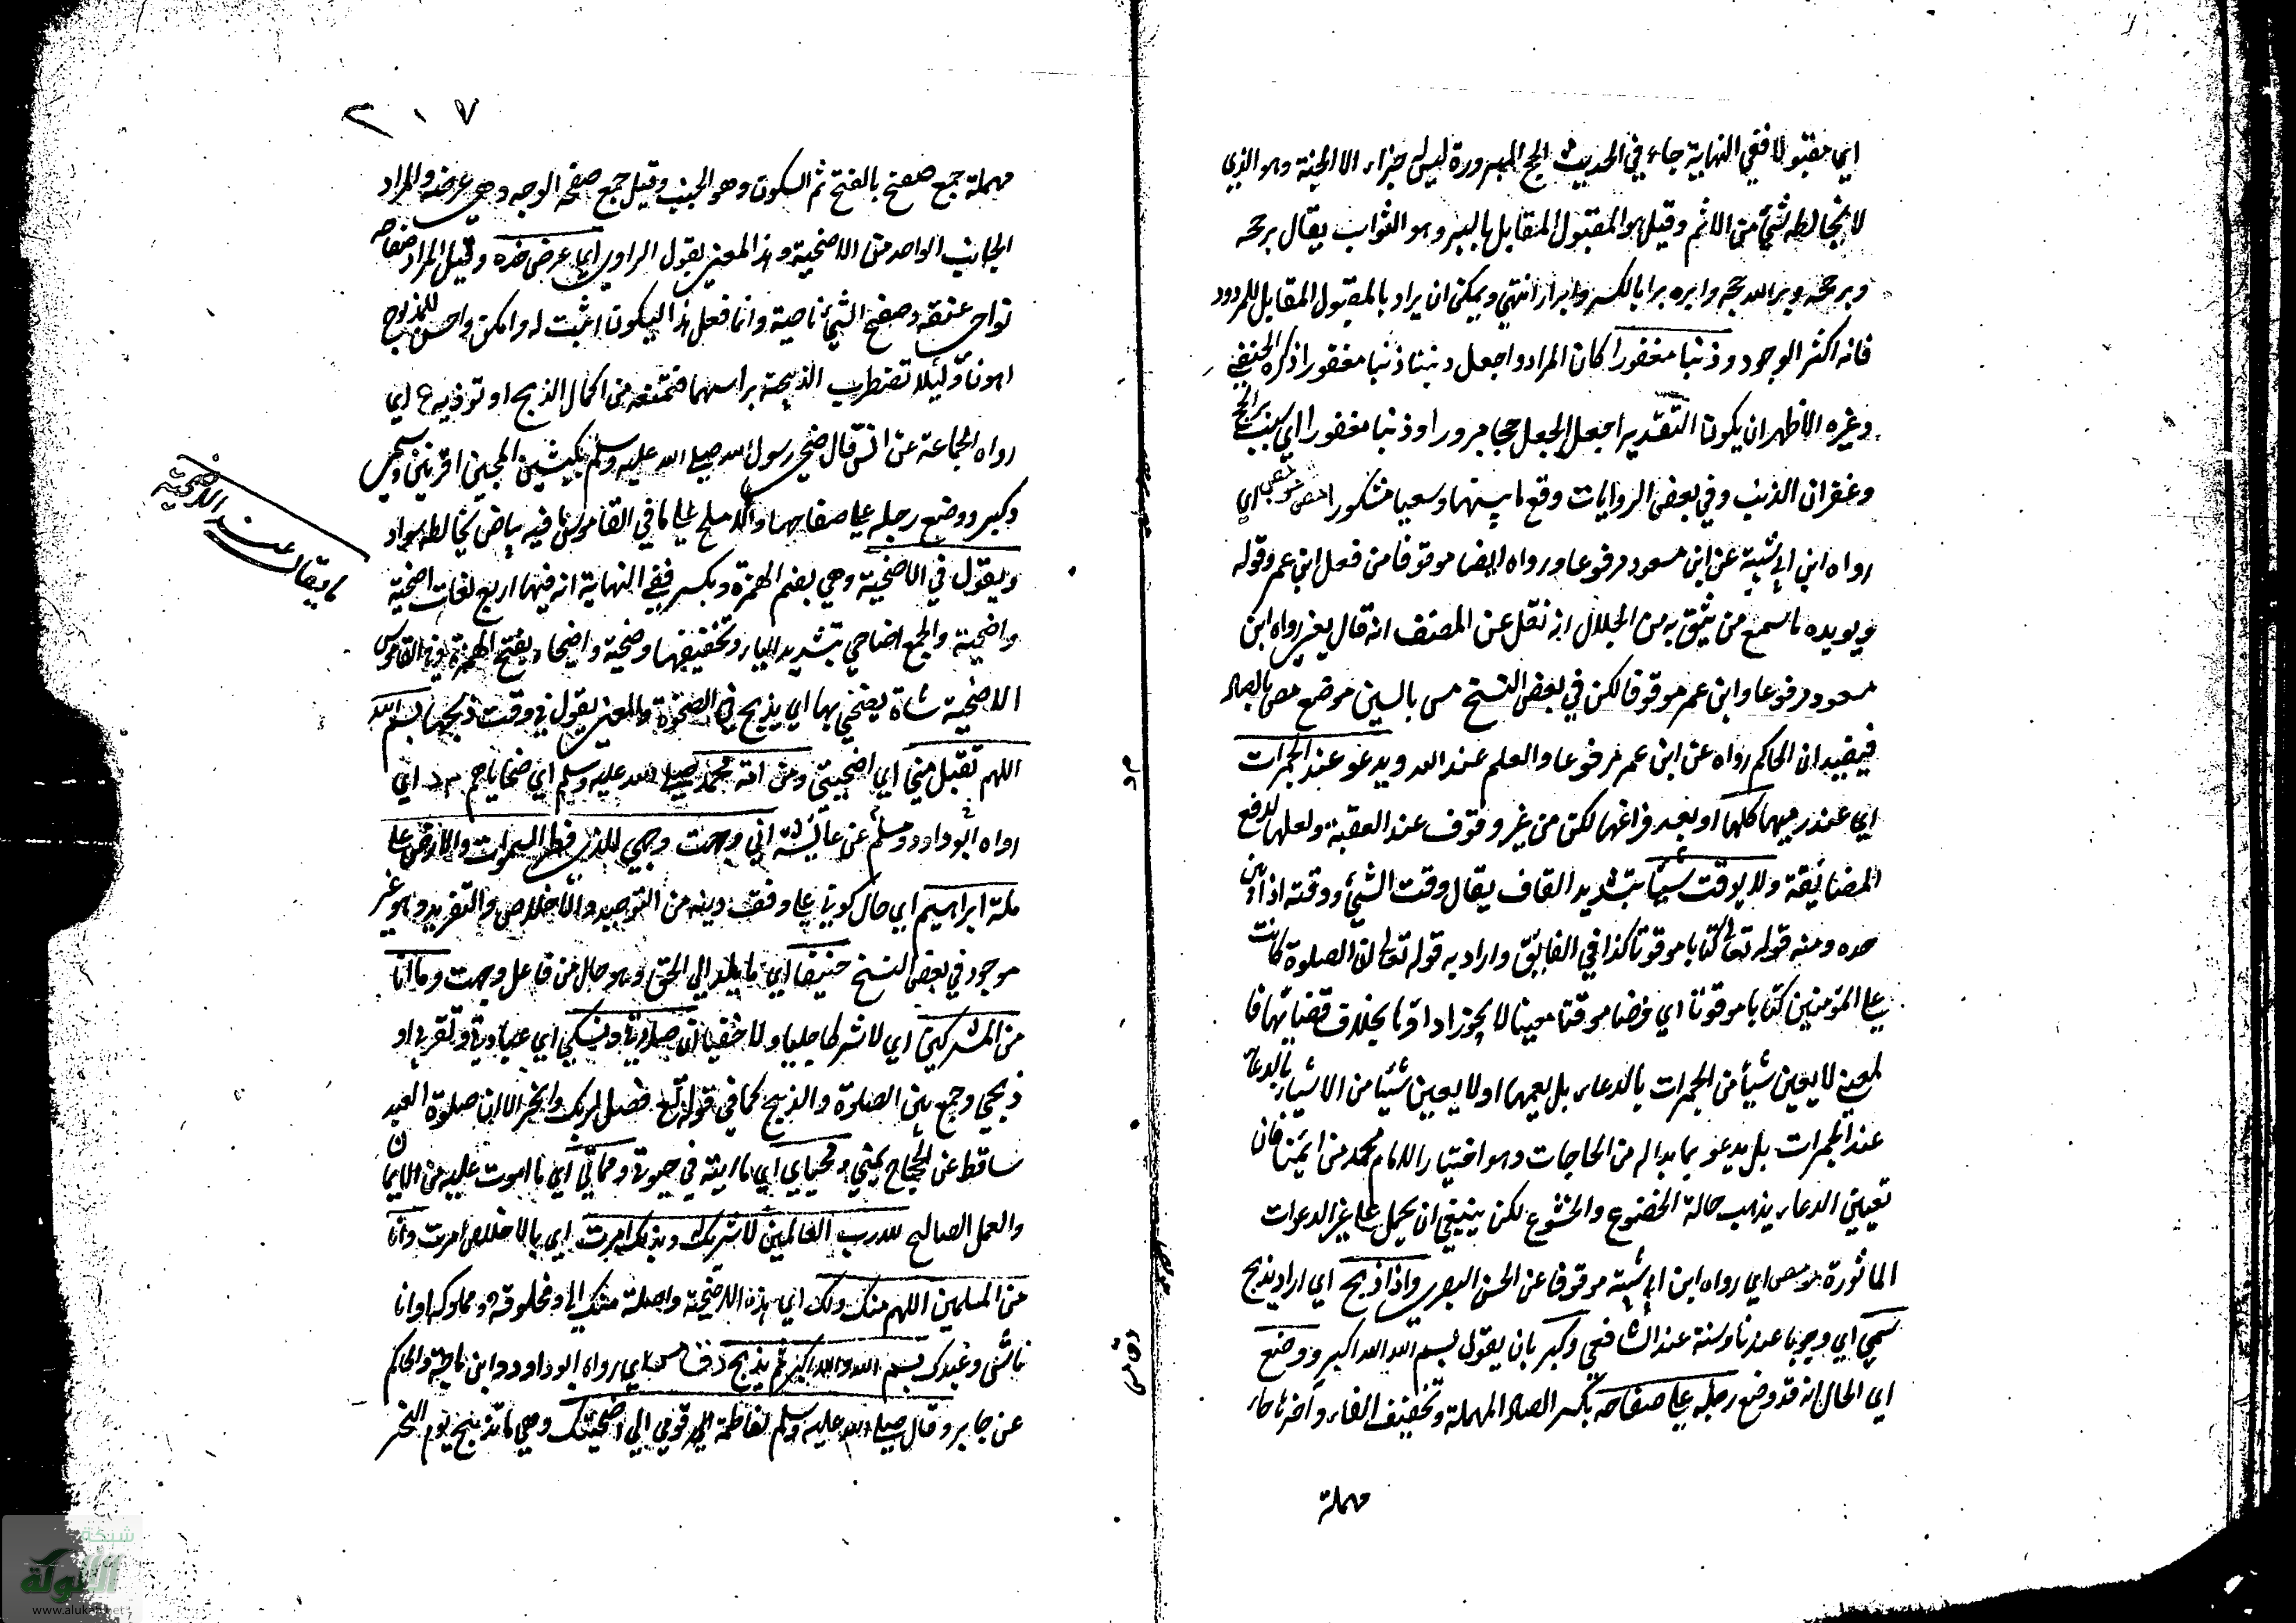 اي مقبولا ففي النهاية جاء في الحديث الحج المبرورة ليس جزاء الا الجنة وهو الذي
لا يخالطه شيء من الاثم وقيل هو المقبول المقابل بالبر وهو الثواب يقال بر حجه
وبر حجه وبر الله حجه وابره برا بالكسر وابرارا انتهى ويمكن ان يراد بالمقبول المقابل للمردود
فانه اكثر الوجود وذنبا مغفورا كان المراد واجعل ذنبنا ذنبا مغفورا ذكره الحنفي
وغيره الاظهر ان يكون التقدير اجعل الجعل حجا مبرورا وذنبا مغفورا اي بسبب بر الحج
وغفران الذنب وفي بعض الروايات وقع ما بينهما وسعيا مشكورا اي
رواه ابن ابي شيبة عن ابن مسعود مرفوعا ورواه ايضا موقوفا من فعل ابن عمر وقوله
ويويده ما سمع من يثق به من الجلال انه نقل عن المصنف انه قال يعني رواه ابن
مسعود مرفوعا وابن عمر موقوفا لكن في بعض النسخ مس بالسين موضع مص بالصاد
فيفيد ان الحاكم رواه عن ابن عمر مرفوعا والعلم عند الله ويدعو عند الجمرات
اي عند رميها كلها او بعد فراغها لكن من غير وقوف عند العقبة ولعلها لدفع
المضائقة ولا يوقت شيئا بتشديد القاف يقال وقت الشيء ووقته اذا بين
حده ومنه قوله تعالى كتابا موقوتا كذا في الفائق واراد به قوله تعالى ان الصلوة كانت
على المؤمنين كتابا موقوتا اي فرضا موقتا معينا لا يجوز اداؤها بخلاف قضائها فا
لمعنى لا يعين شيأ من الجمرات بالدعاء بل يعمها او لا يعين شيئا من الاشياء بالدعاء
عند الجمرات بل يدعو بما بدا له من الحاجات وهو اختيار الامام محمد من ائمتنا فان
تعيين الدعاء يذهب حالة الخضوع والخشوع لكن ينبغي ان يحمل على غير الدعوات
الماثورة مومص اي رواه ابن ابي شيبة موقوفا عن الحسن البصري واذا ذبح اي اراد يذبح
سمى اي وجوبا عندنا وسنة عند الشافعي وكبر بان يقول بسم الله الله اكبر ووضع
اي الحال انه قد وضع رجله على صفاحه بكسر الصاد المهملة وتخفيف الفاء وآخرها حاء
مهملة
٢٠٧
مهملة جمع صفح بالفتح ثم السكون وهو الجنب وقيل جمع صفحة الوجه وهي عرضه والمراد
الجانب الواحد من الاضحية وهذا المعنى بقول الراوي اي عرض خده وقيل المراد صفاحه
نواحي عنقه وصفح الشيء ناحيته وانما فعل هذا ليكون اثبت له وامكن واحسن للمذبوح
اهونا ولئلا تضطرب الذبيحة براسها فتمنعه من اكمال الذبح او توذيه ع اي
رواه الجماعة عن انس قال ضحى رسول الله صلى الله عليه وسلم بكبشين املحين اقرنين وسمى
وكبر ووضع رجله على صفاحهما والاملح على ما في القاموس ما فيه بياض يخالطه سواد
ويقول في الاضحية وهي بضم الهمزة وبكسر ففي النهاية انه فيها اربع لغات اضحية
واضحية والجمع اضاحي بتشديد الياء وتخفيفها وضحية واضحاة بفتح الهمزة وفي القاموس
الاضحية شاة يضحى بها اي يذبح في الضحوة والمعنى يقول في وقت ذبحها بسم الله
اللهم تقبل مني اي اضحيتي ومن امة محمد صلى الله عليه وسلم اي ضحاياهم م د اي
رواه ابوداود ومسلم عن عائشة اني وجهت وجهي للذي فطر السموات والارض على
ملة ابراهيم اي حال كوني على وفق دينه من التوحيد والاخلاص والتفريد وهو غير
موجود في بعض النسخ حنيفا اي مائلا الى الحق وهو حال من فاعل وجهت وما انا
من المشركين اي لا شركا جليا ولا خفيا ان صلاتي ونسكي اي عبادتي وتقربي او
ذبحي وجمع بين الصلوة والذبح كما في قوله تع فصل لربك وانحر الا ان صلوة العيد
ساقط عن الحجاج بمنى ومحياي اي ما اتيته في حيوتي ومماتي اي ما اموت عليه من الايمان
والعمل الصالح لله رب العالمين لا شريك له وبذلك امرت اي بالاخلاص امرت وانا
من المسلمين اللهم منك ولك اي هذه الاضحية واصلة منك الي ومخلوقة ومملوكة او انا
ناشئ وعبدك بسم الله والله اكبر ثم يذبح دق مس اي رواه ابو داود وابن ماجة والحاكم
عن جابر وقال صلى الله عليه وسلم لفاطمة اي قومي الى اضحيتك وهي ما تذبح يوم النحر
ما يقال عند الاضحية
م د
دق مس
شبكة
الألوكة
www.alukah.net